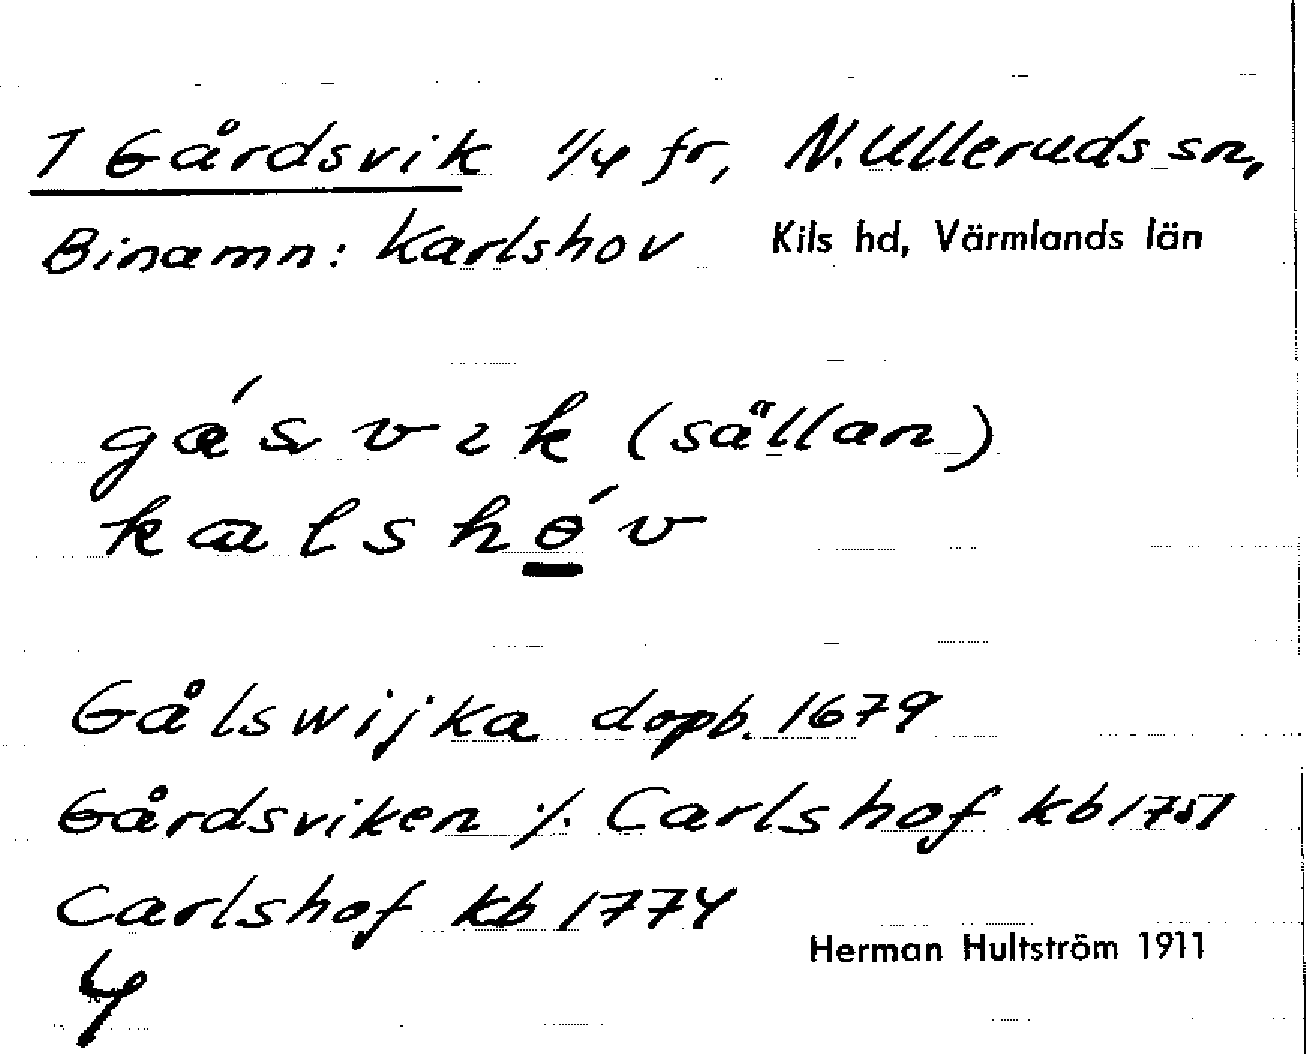 1 Gårdsvik 1/4 fr, N. Ulleruds sn,
Binamn: Karlshov Kils hd, Värmlands län
gásvik (sällan)
kalshóv
Gålswijka dopb. 1679
Gårdsviken ./. Carlshof kb 1751
Carlshof kb 1774
Herman Hultström 1911